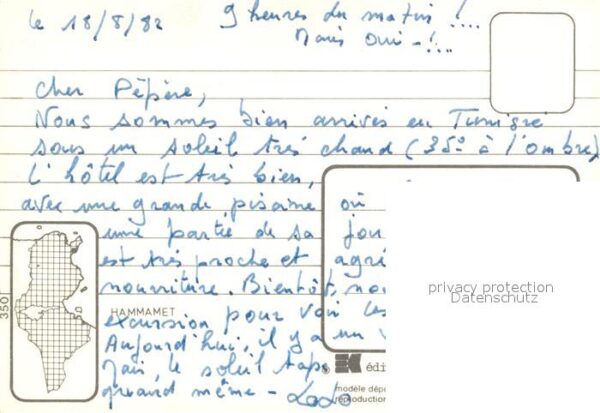 le 18/8/82
9 heures du matin !...
Mais oui - !...
Cher Pépère,
Nous sommes bien arrivés en Tunisie
sous un soleil très chaud (35° à l'ombre)
L'hôtel est très bien,
avec une grande piscine où
une partie de sa jou
est très proche et agré
nourriture. Bientôt, no
excursion pour voir les
Aujourd'hui, il y a un v
Mais, le soleil tape
quand même - Lado
350
HAMMAMET
privacy protection
Datenschutz
édi
modèle dépo
reproduction